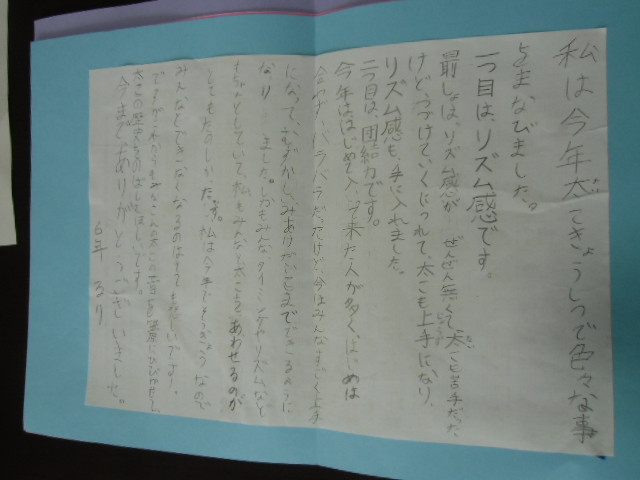 私は今年太こきょうしつで色々な事
をまなびました。
一つ目は、リズム感です。
最しょは、リズム感がぜんぜん無くて太こも苦手だった
けど、つづけていくにつれて、太こも上手になり、
リズム感も、手に入れました。
二つ目は、団結力です。
今年ははじめて入って来た人が多く、はじめは
バラバラだったけど、今はみんなすごく上手
になって、むずかしい
なりました。しかもみんなタイミングやリズムなど
ちゃんとしていて、私もみんなと太こをあわせるのが
とてもたのしかった。私は今年でそつぎょうなので
みんなとできなくなるのはとてもかなしいです。
ですがこれからも
太この歴史ものばしてほしいです。
今までありがとうございました。
6年 るり